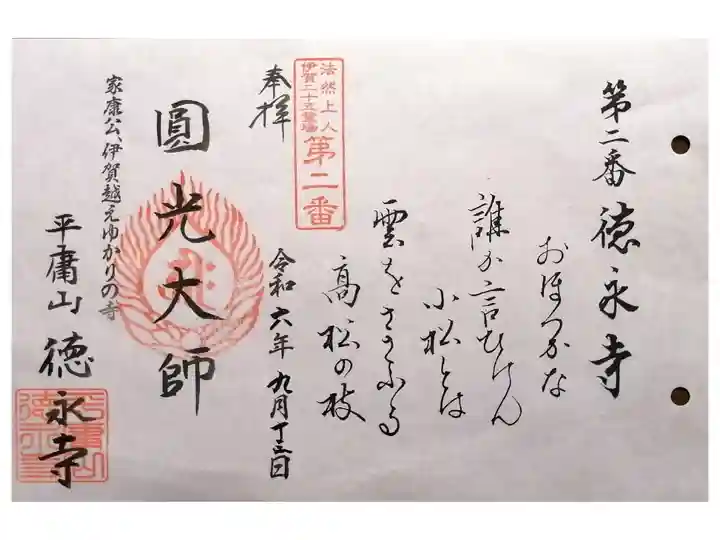 第二番 徳永寺
おぼつかな
誰か言ひけん
小松とは
雲をさゝふる
高松の枝
法然上人
伊賀二十五霊場
第二番
奉拝
令和六年 九月
圓光大師
家康公、伊賀越えゆかりの寺
平庸山 徳永寺